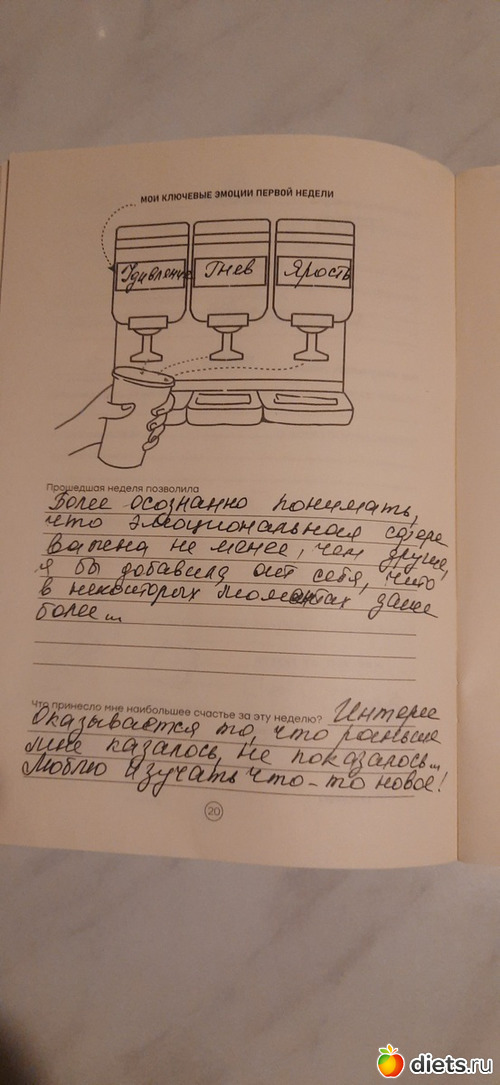 МОИ КЛЮЧЕВЫЕ ЭМОЦИИ ПЕРВОЙ НЕДЕЛИ
Удивление Гнев Ярость
Прошедшая неделя позволила
Более осознанно понимать,
что эмоциональная сфера
важна не менее, чем другие,
я бы добавила от себя, что
в некоторых моментах даже
более...
Что принесло мне наибольшее счастье за эту неделю? Интерес
Оказывается то, что раньше
мне казалось, не показалось...
Люблю изучать что-то новое!
20
diets.ru